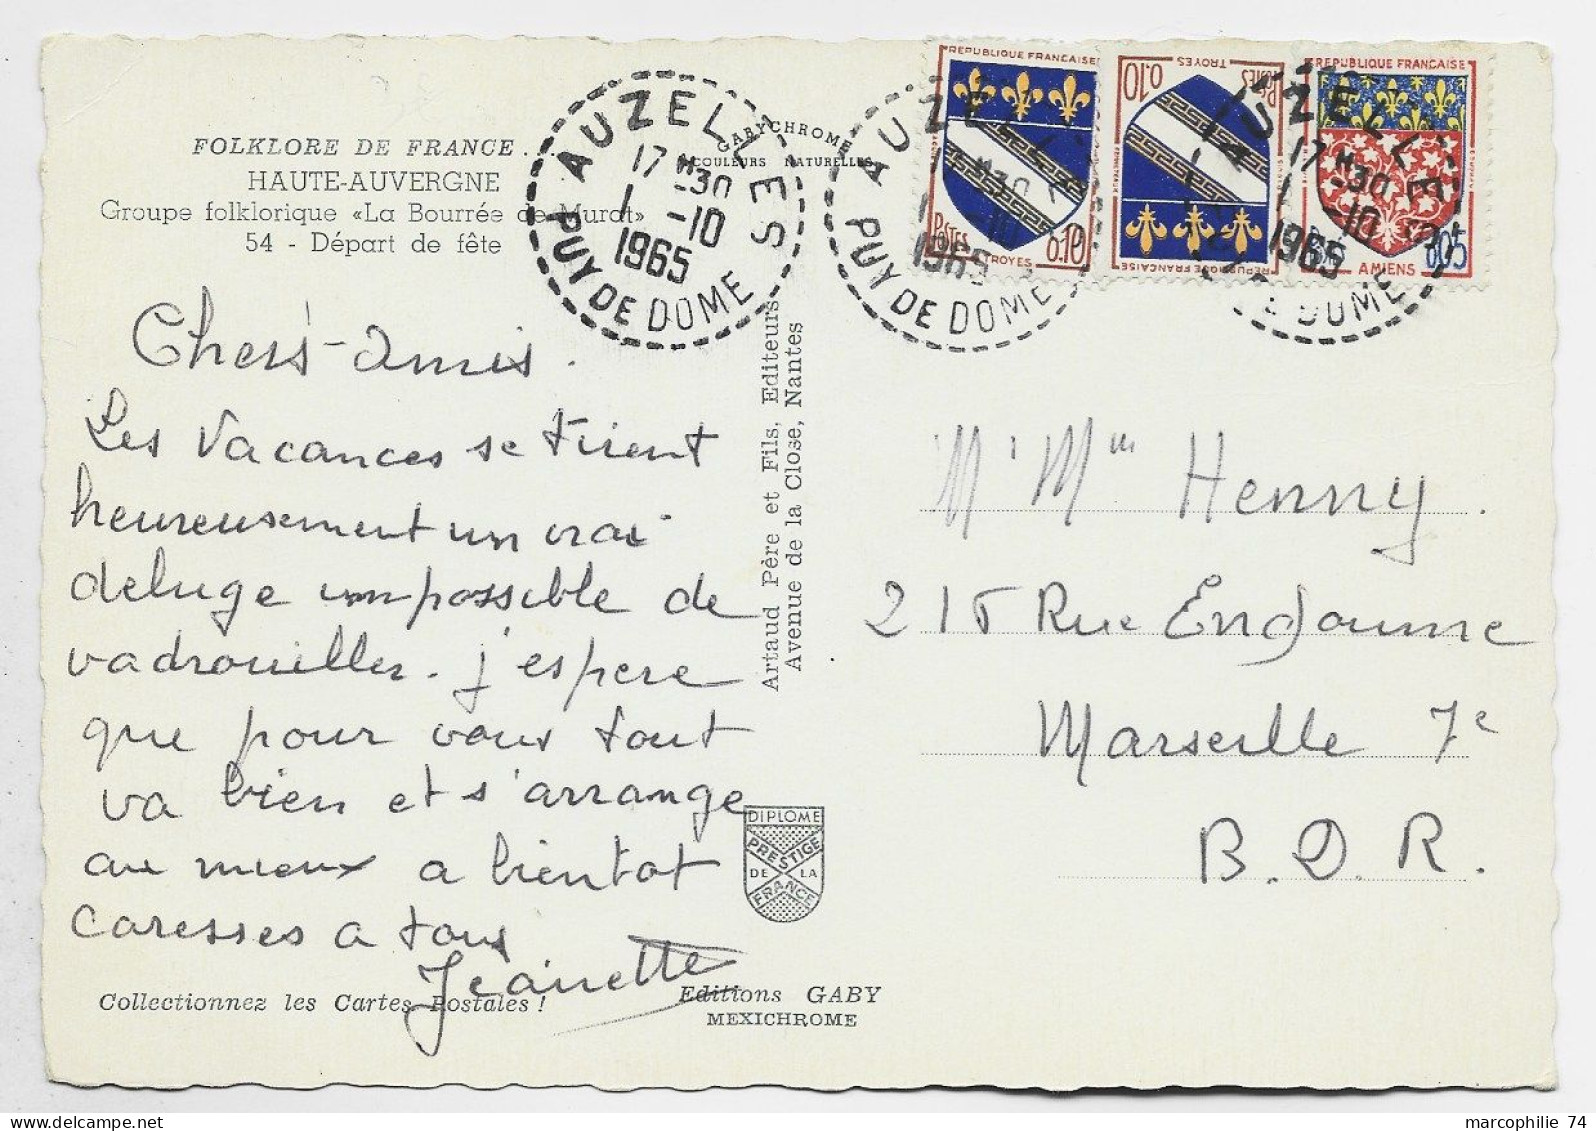 FOLKLORE DE FRANCE ...
HAUTE-AUVERGNE
Groupe folklorique «La Bourrée de Murat»
54 - Départ de fête
AUZELLES
17 H 30
1 -10
1965
PUY DE DOME
GABYCHROME
COULEURS NATURELLES
AUZELLES
17 H 30
1 -10
1965
PUY DE DOME
RÉPUBLIQUE FRANÇAISE
POSTES 0.10
TROYES
TROYES
0.10 POSTES
RÉPUBLIQUE FRANÇAISE
RÉPUBLIQUE FRANÇAISE
0.05
AMIENS
AUZELLES
17 H 30
1 -10
1965
PUY DE DOME
Chers amis.
Les Vacances se tirent
heureusement un vrai
deluge impossible de
vadrouiller. j'espere
que pour vous tout
va bien et s'arrange
au mieux a bientot
caresses a tous
Jeanette
Collectionnez les Cartes Postales !
Artaud Père et Fils, Editeurs
Avenue de la Close, Nantes
DIPLOME
PRESTIGE
DE LA
FRANCE
Editions GABY
MEXICHROME
M. Mme Henny
215 Rue Endoume
Marseille 7e
B.D.R.
marcophilie 74